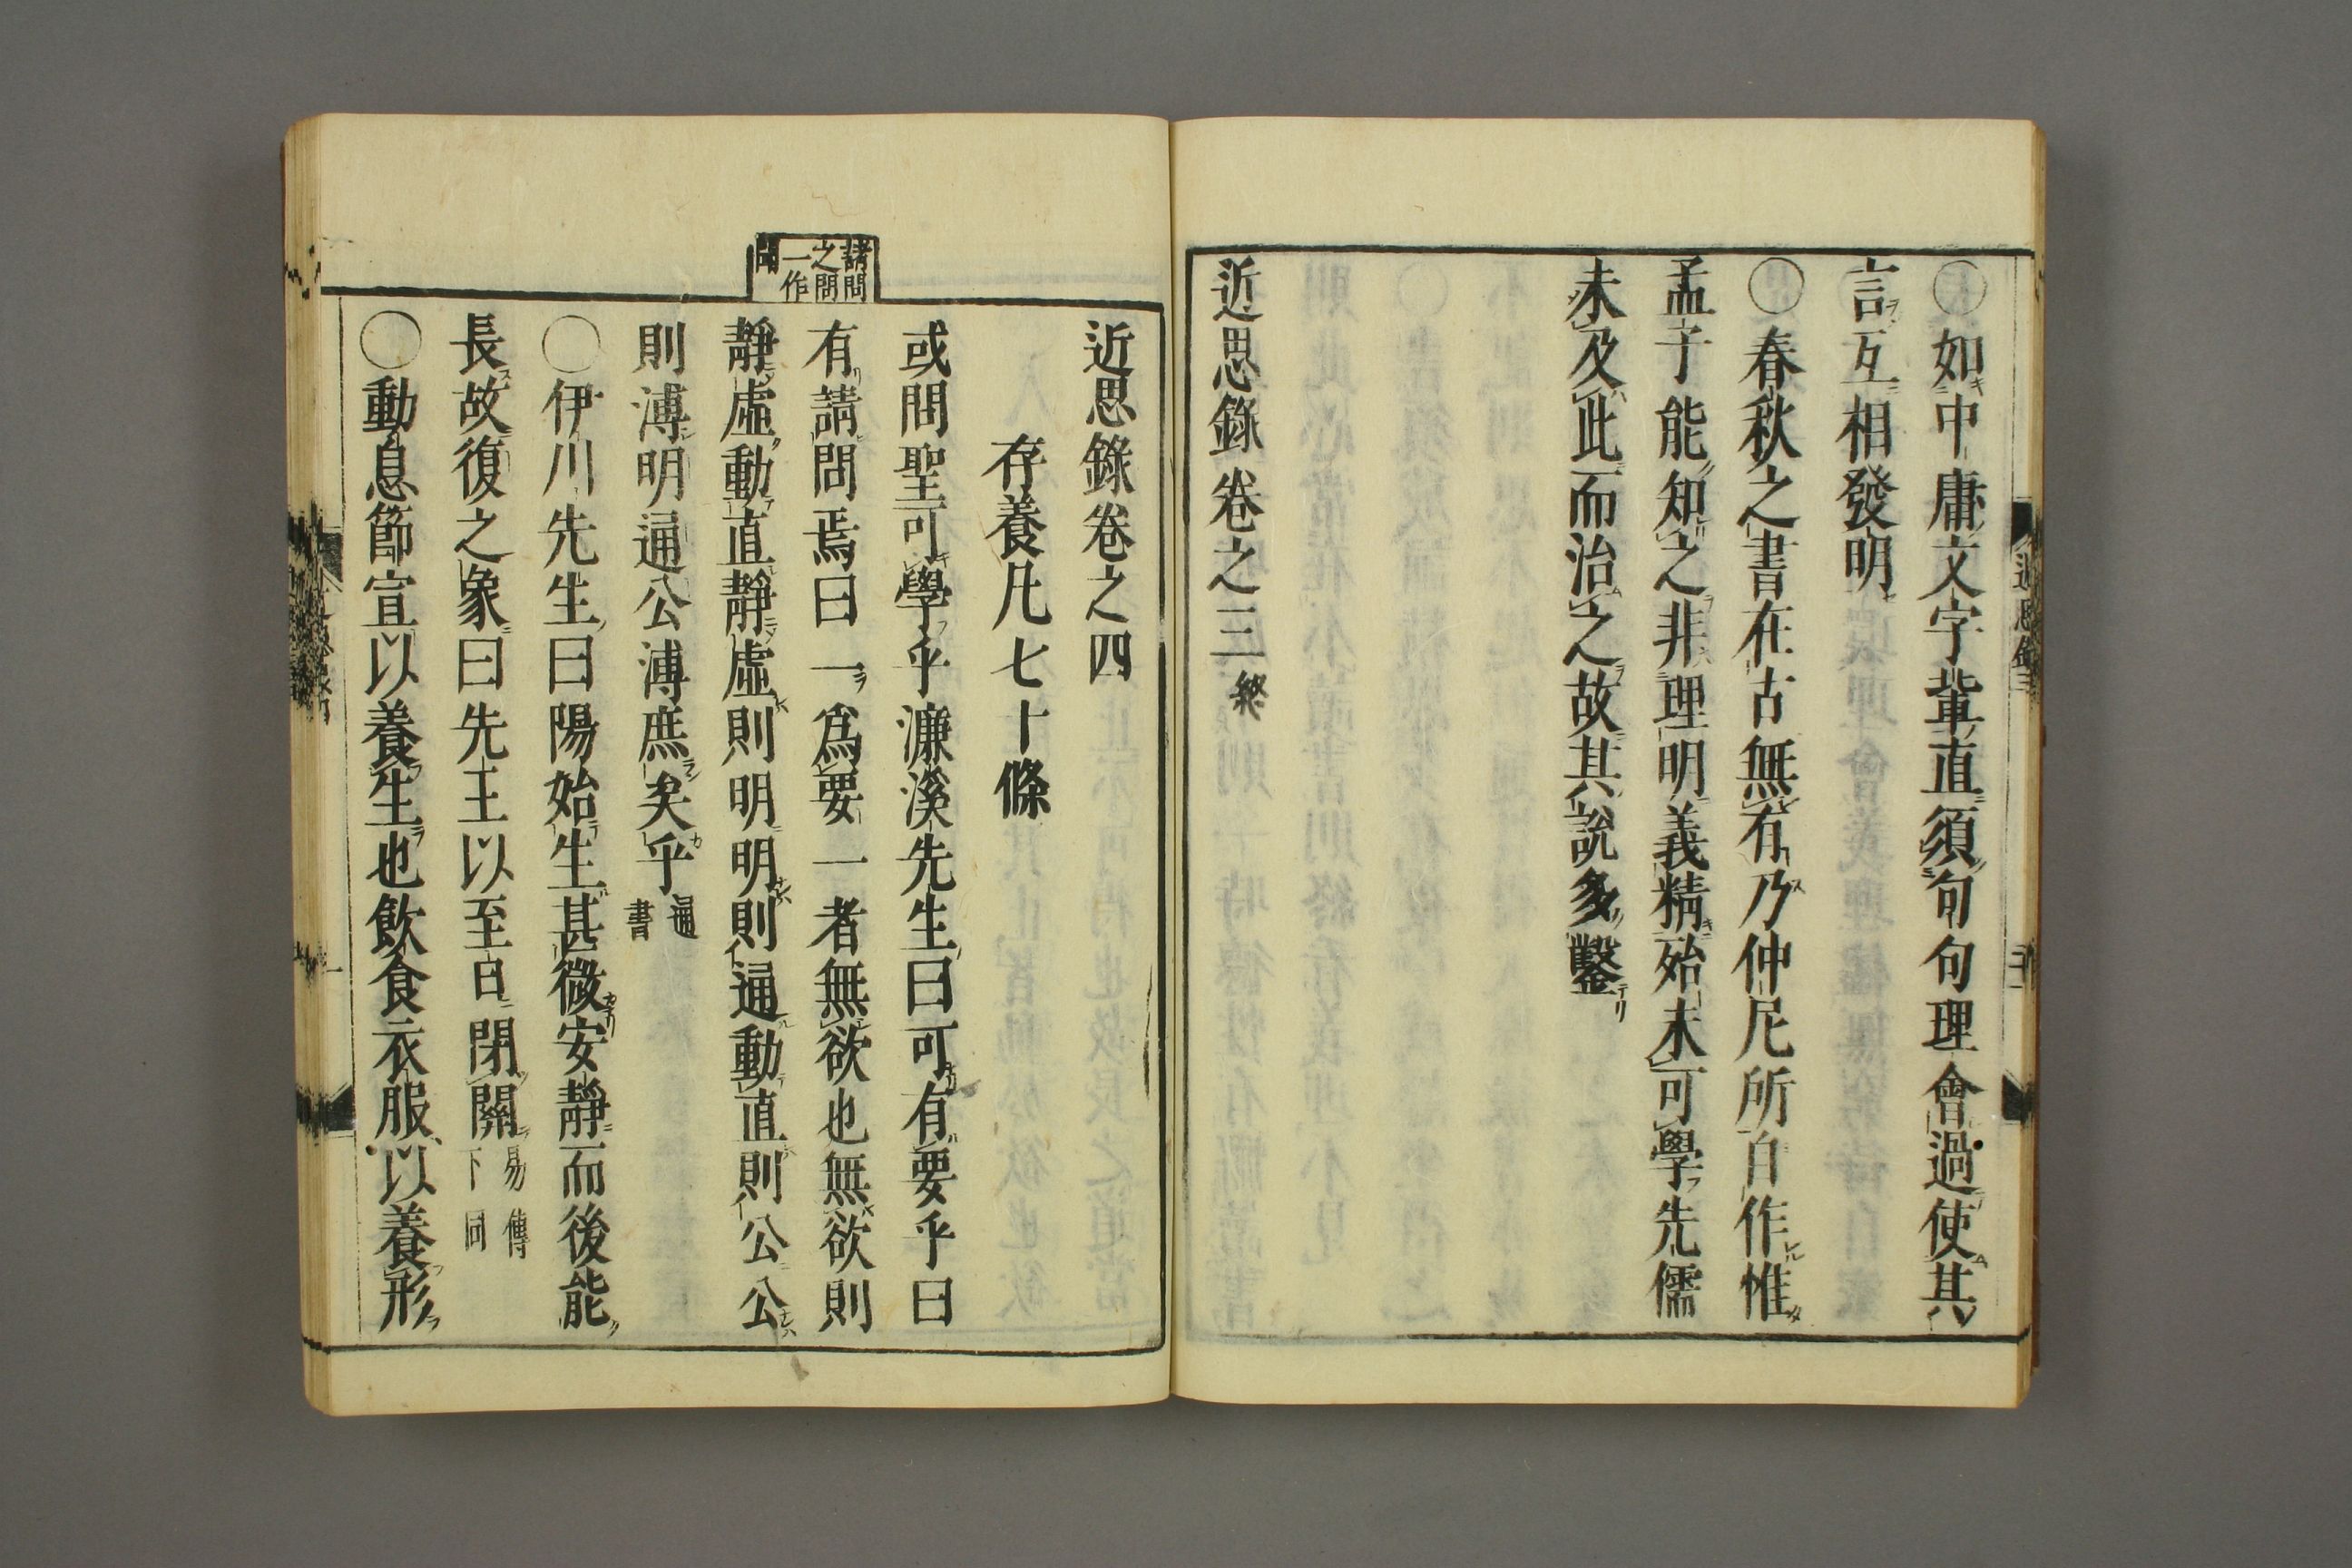 ○如中庸文字輩直須句句理會過使其
言互相發明
○春秋之書在古無有乃仲尼所自作惟
孟子能知之非理明義精殆未可學先儒
未及此而治之故其說多鑿
近思錄卷之三終
近思錄卷之四
存養凡七十條
請問
之問
一作
聞
或問聖可學乎濂溪先生曰可有要乎曰
有請問焉曰一爲要一者無欲也無欲則
靜虛動直靜虛則明明則通動直則公公
則溥明通公溥庶矣乎通書
○伊川先生曰陽始生甚微安靜而後能
長故復之象曰先王以至日閉關易傳下同
○動息節宣以養生也飲食衣服以養形